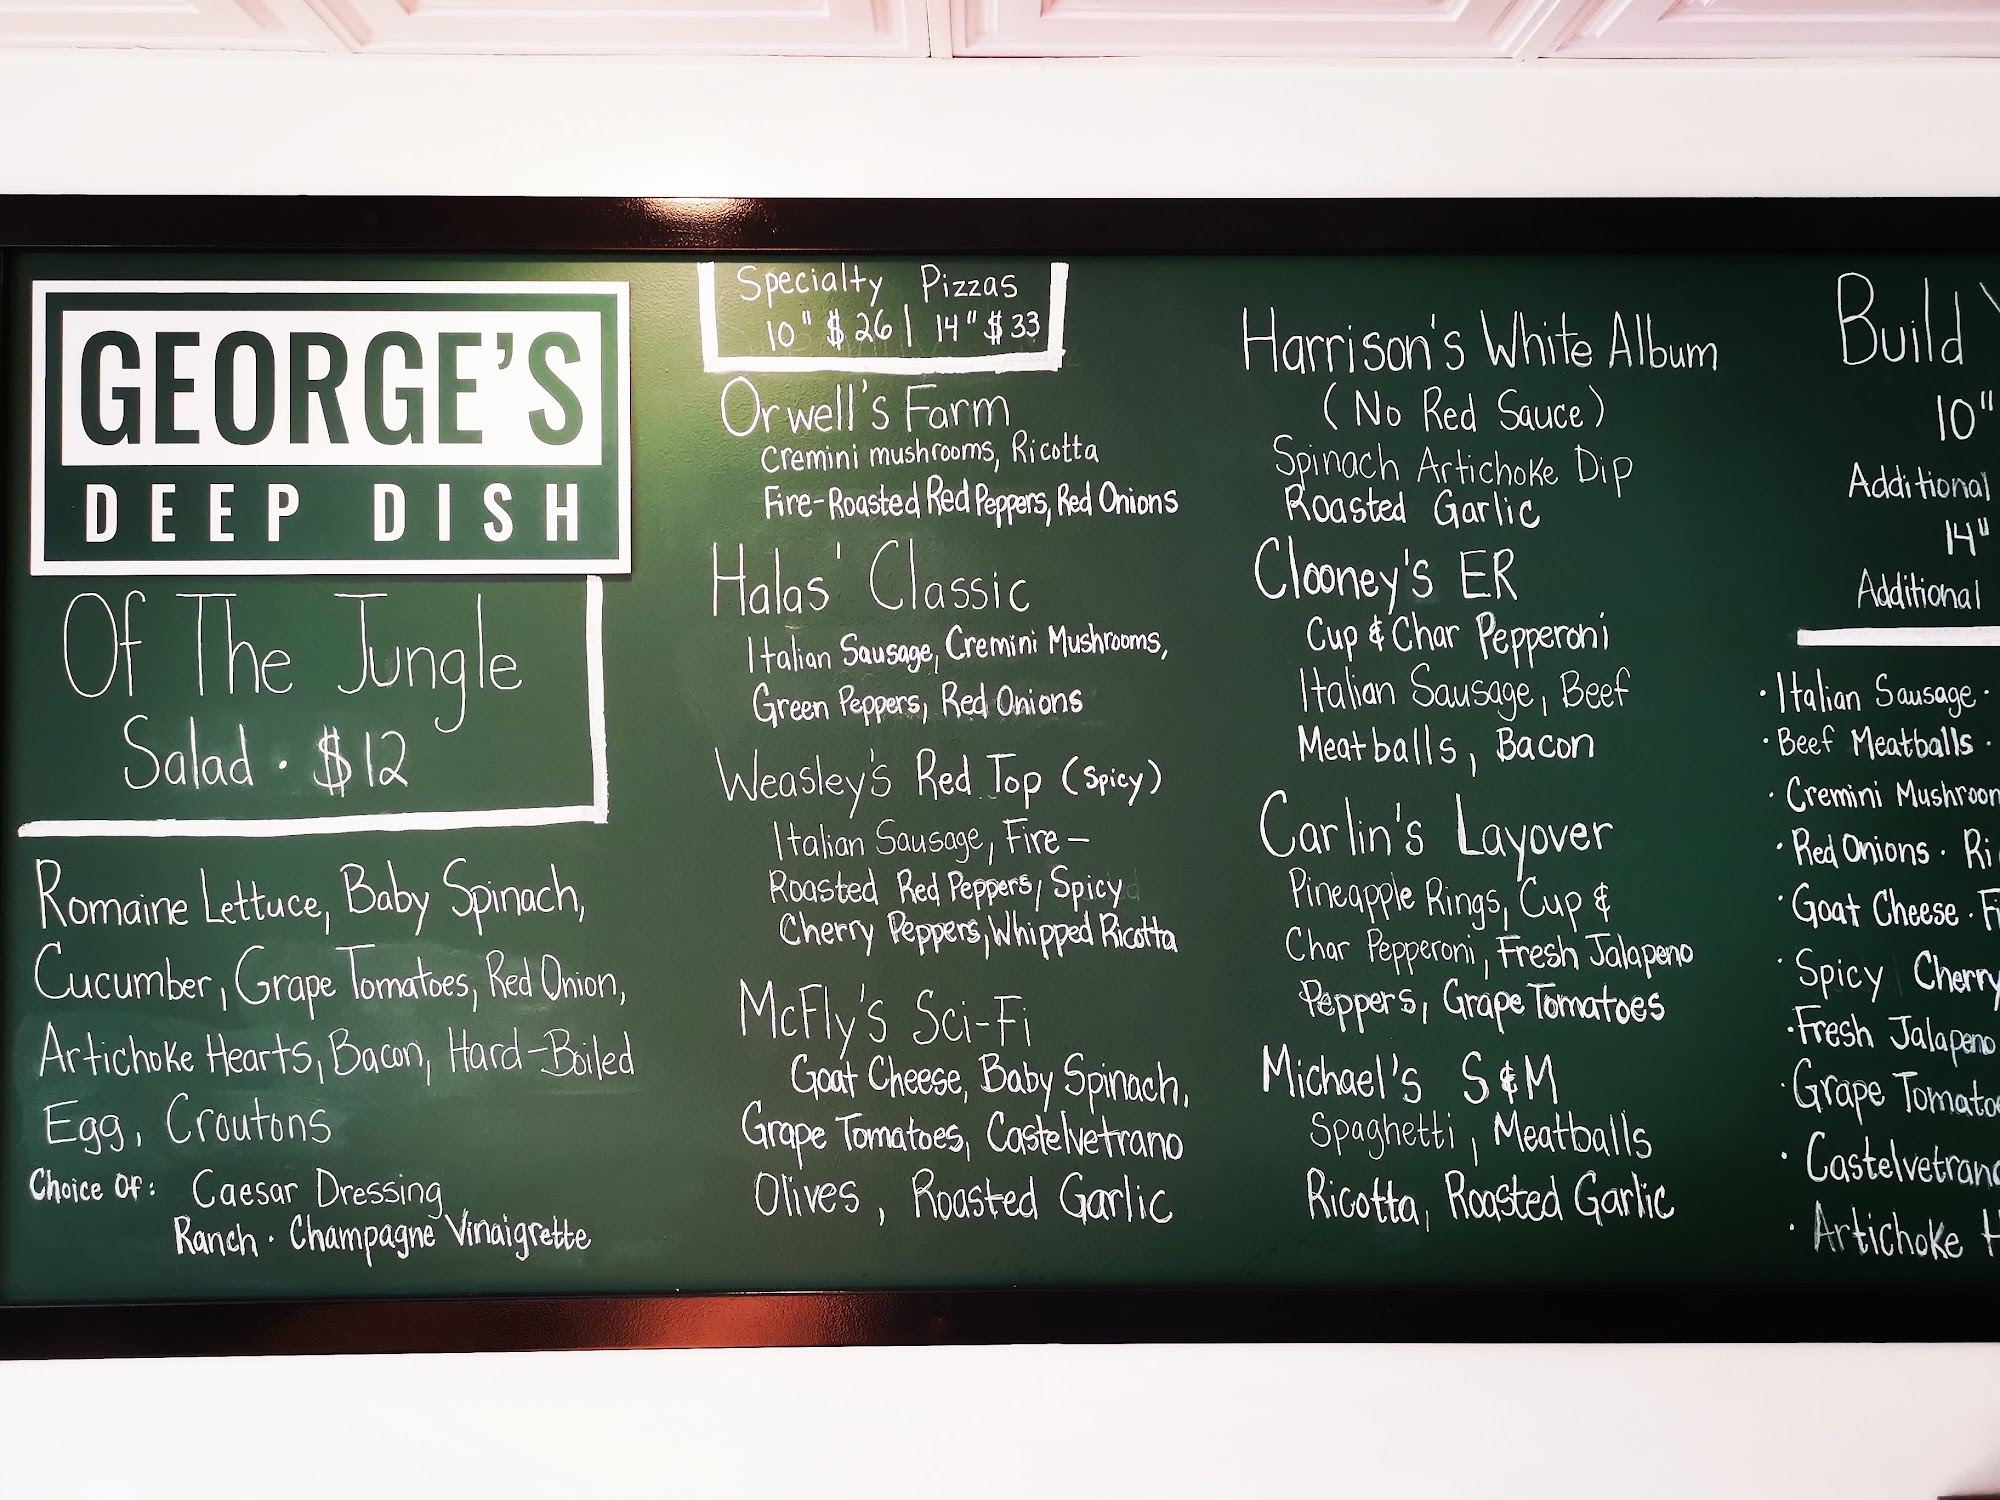 GEORGE'S
DEEP DISH
Of The Jungle
Salad · $12
Romaine Lettuce, Baby Spinach,
Cucumber, Grape Tomatoes, Red Onion,
Artichoke Hearts, Bacon, Hard-Boiled
Egg, Croutons
Choice Of: Caesar Dressing
Ranch · Champagne Vinaigrette
Specialty Pizzas
10" $26 | 14" $33
Orwell's Farm
Cremini mushrooms, Ricotta
Fire-Roasted Red Peppers, Red Onions
Halas' Classic
Italian Sausage, Cremini Mushrooms,
Green Peppers, Red Onions
Weasley's Red Top (Spicy)
Italian Sausage, Fire-
Roasted Red Peppers, Spicy
Cherry Peppers, Whipped Ricotta
McFly's Sci-Fi
Goat Cheese, Baby Spinach,
Grape Tomatoes, Castelvetrano
Olives, Roasted Garlic
Harrison's White Album
(No Red Sauce)
Spinach Artichoke Dip
Roasted Garlic
Clooney's ER
Cup & Char Pepperoni
Italian Sausage, Beef
Meatballs, Bacon
Carlin's Layover
Pineapple Rings, Cup &
Char Pepperoni, Fresh Jalapeno
Peppers, Grape Tomatoes
Michael's S&M
Spaghetti, Meatballs
Ricotta, Roasted Garlic
Build
10"
Additional
14"
Additional
· Italian Sausage ·
· Beef Meatballs ·
· Cremini Mushroon
· Red Onions · Ri
· Goat Cheese · Fi
· Spicy Cherry
· Fresh Jalapeno
· Grape Tomato
· Castelvetran
· Artichoke H